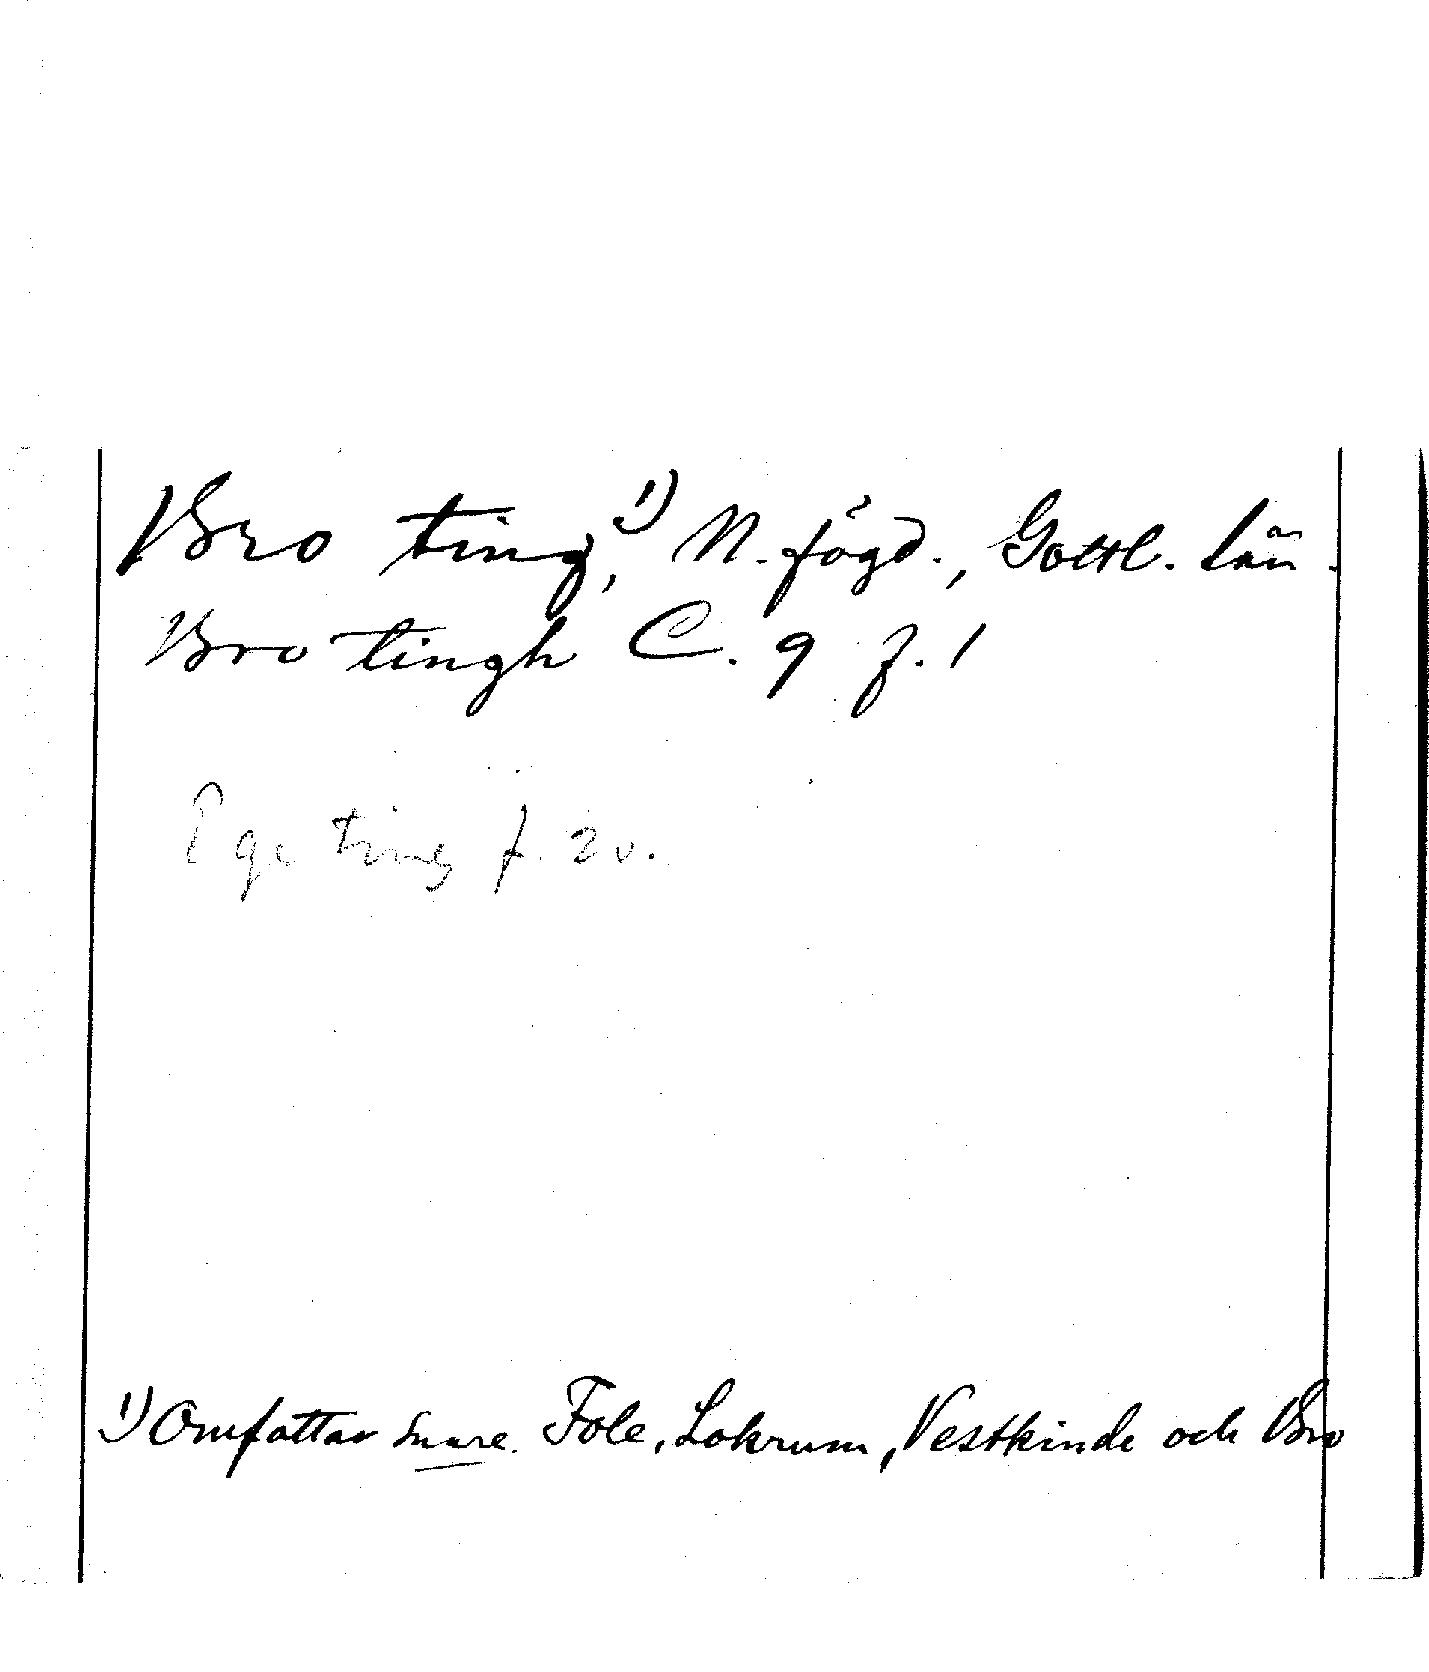 Bro ting,¹⁾ N. fögd., Gottl. län.
Bro tingh C. 9 f. 1
ting f. 2 v.
¹⁾ Omfattar snare. Fole, Lokrum, Vestkinde och Bro